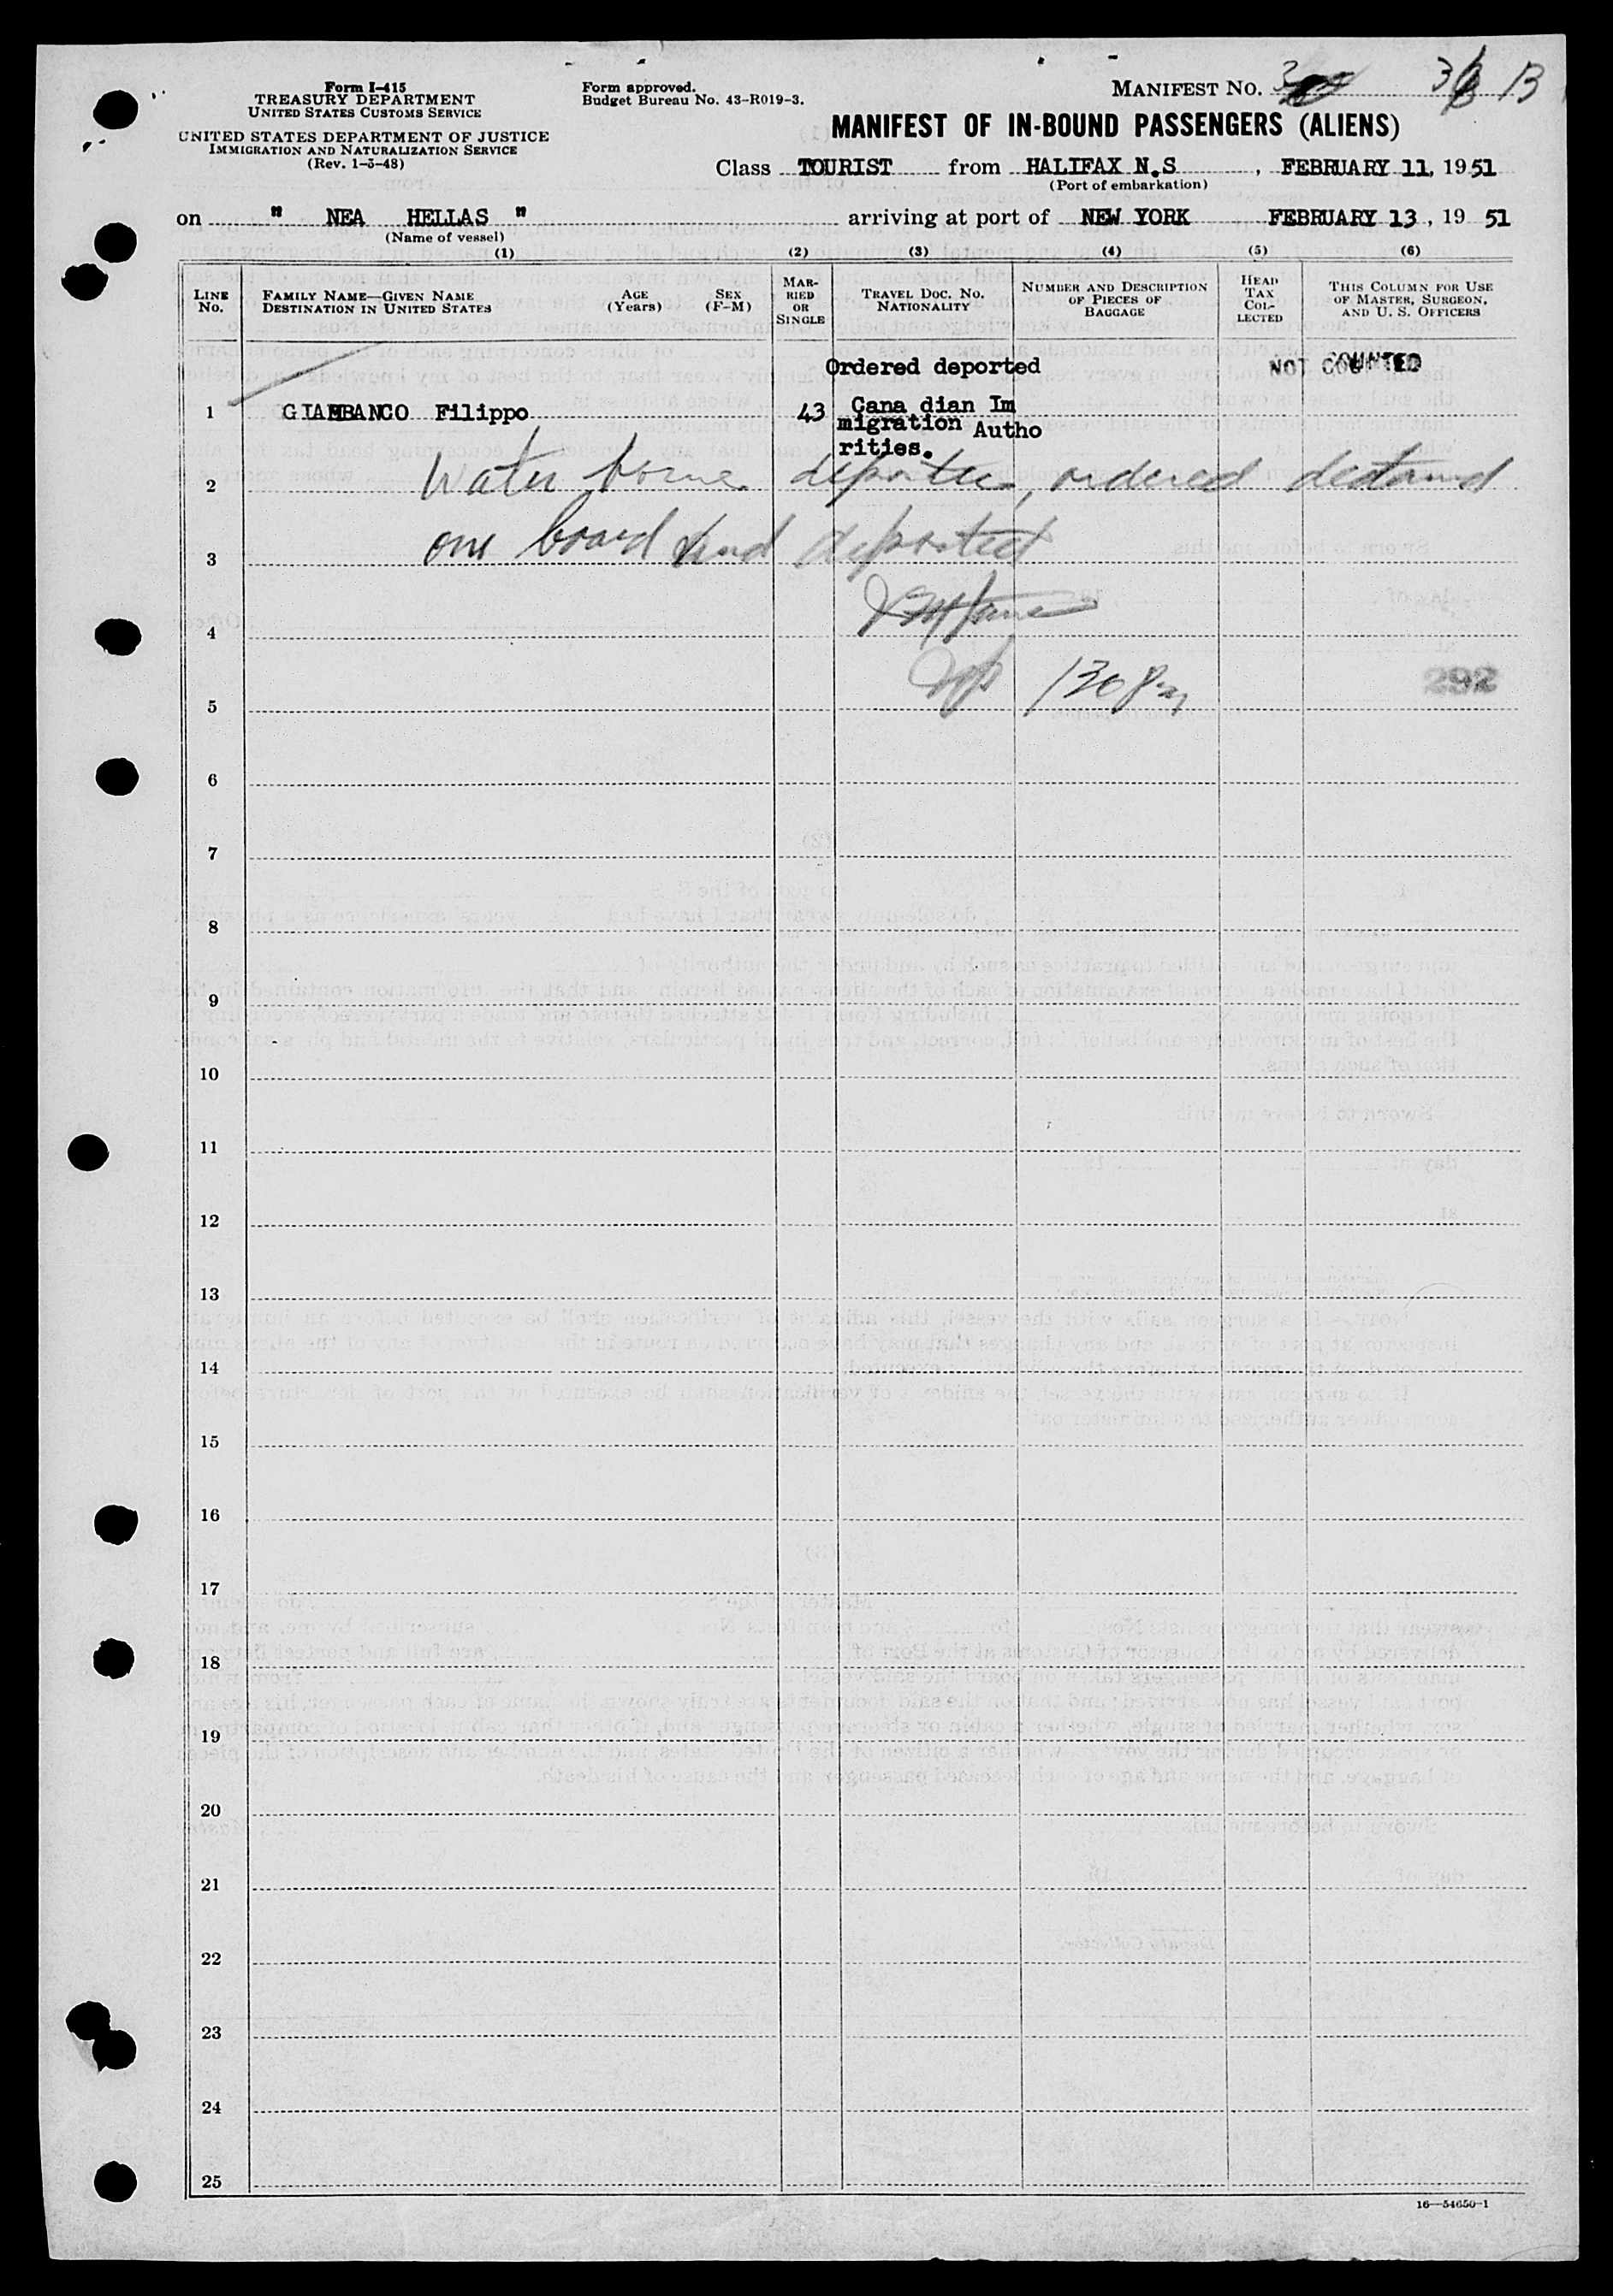 Form I-415
TREASURY DEPARTMENT
UNITED STATES CUSTOMS SERVICE
UNITED STATES DEPARTMENT OF JUSTICE
IMMIGRATION AND NATURALIZATION SERVICE
(Rev. 1-3-48)
Form approved.
Budget Bureau No. 43-R019-3.
MANIFEST NO.
MANIFEST OF IN-BOUND PASSENGERS (ALIENS)
Class TOURIST from HALIFAX N.S , FEBRUARY 11, 1951
(Port of embarkation)
on " NEA HELLAS " arriving at port of NEW YORK FEBRUARY 13, 19 51
(Name of vessel)
(1) (2) (3) (4) (5) (6)
LINE No.
FAMILY NAME—GIVEN NAME
DESTINATION IN UNITED STATES
AGE (Years)
SEX (F-M)
MARRIED OR SINGLE
TRAVEL DOC. NO.
NATIONALITY
NUMBER AND DESCRIPTION OF PIECES OF BAGGAGE
HEAD TAX COLLECTED
THIS COLUMN FOR USE OF MASTER, SURGEON, AND U. S. OFFICERS
Ordered deported NOT COUNTED
1 GIAMBANCO Filippo 43 Cana dian Im
migration Autho
rities.
2 Water borne deportee, ordered detained
3 one board and deported
4
5 130 pm 292
6
7
8
9
10
11
12
13
14
15
16
17
18
19
20
21
22
23
24
25
16—54650-1